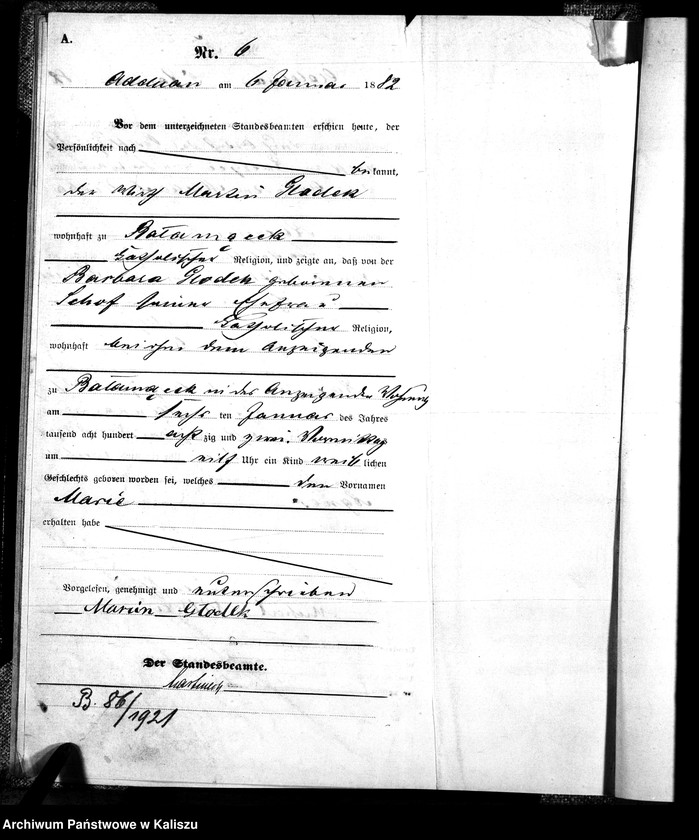 A.
Nr. 6
Adelnau am 6 Januar 1882
Vor dem unterzeichneten Standesbeamten erschien heute, der
Persönlichkeit nach
bekannt,
der Wirth Martin Glodek
wohnhaft zu
katholischer Religion, und zeigte an, daß von der
Barbara Glodek geborenen
seiner Ehefrau
katholischer Religion,
wohnhaft bei ihm dem Anzeigenden
zu in des Anzeigenden Wohnung
am sechs ten Januar des Jahres
tausend acht hundert acht zig und zwei Vormittag
um eilf Uhr ein Kind weib lichen
Geschlechts geboren worden sei, welches den Vornamen
Marie
erhalten habe
Vorgelesen, genehmigt und unterschrieben
Marcin Glodek
Der Standesbeamte.
B. 86/1921
Archiwum Państwowe w Kaliszu